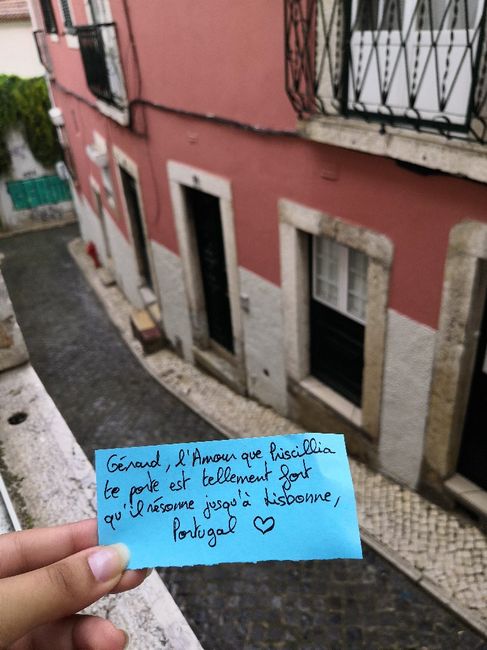 Gérard, l'Amour que Priscillia
te porte est tellement fort
qu'il résonne jusqu'à Lisbonne,
Portugal ♡